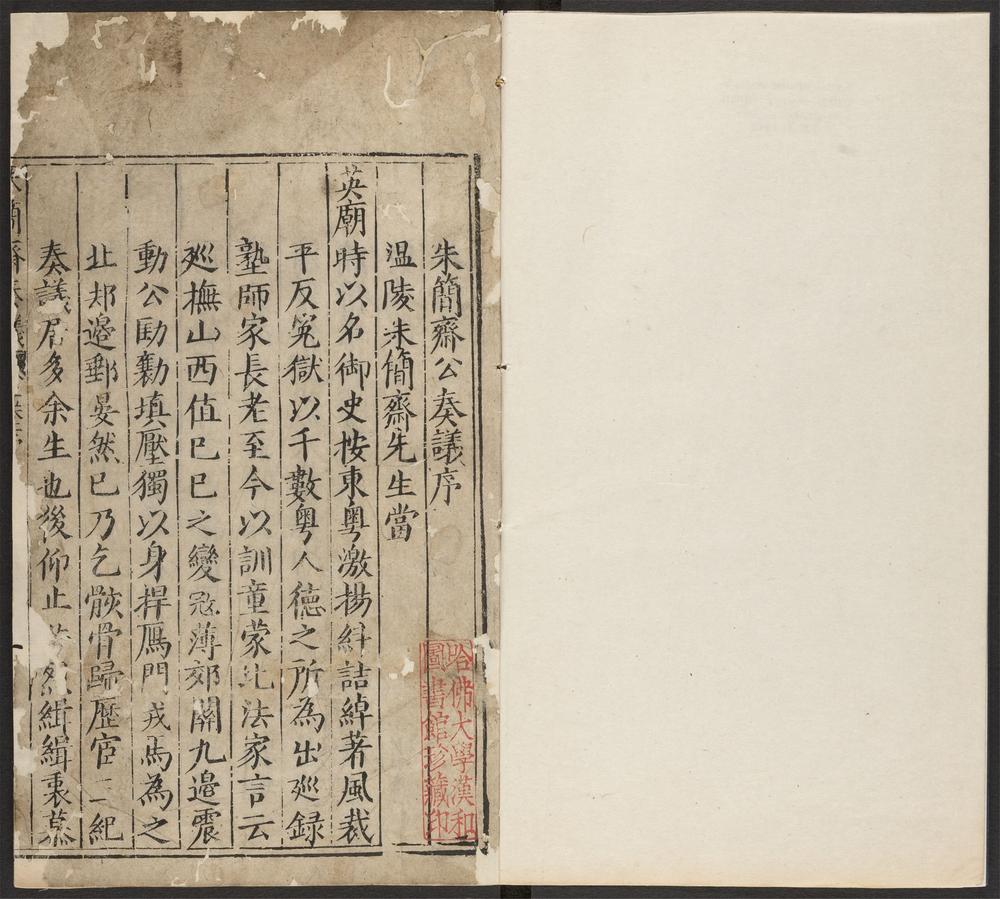 朱簡齋公奏議序
温陵朱簡齋先生當
英廟時以名御史按東粵激揚糾詰綽著風裁
平反冤獄以千數粵人德之所為出廵録
塾師家長老至今以訓童蒙比法家言云
廵撫山西值巳巳之變冦薄郊關九邉震
動公劻勷填壓獨以身捍鴈門戎馬為之
北却邉郵晏然已乃乞骸骨歸歴官二紀
奏議居多余生也後仰止緝緝秉
簡齋奏議
哈佛大學漢和
圖書館珍藏印